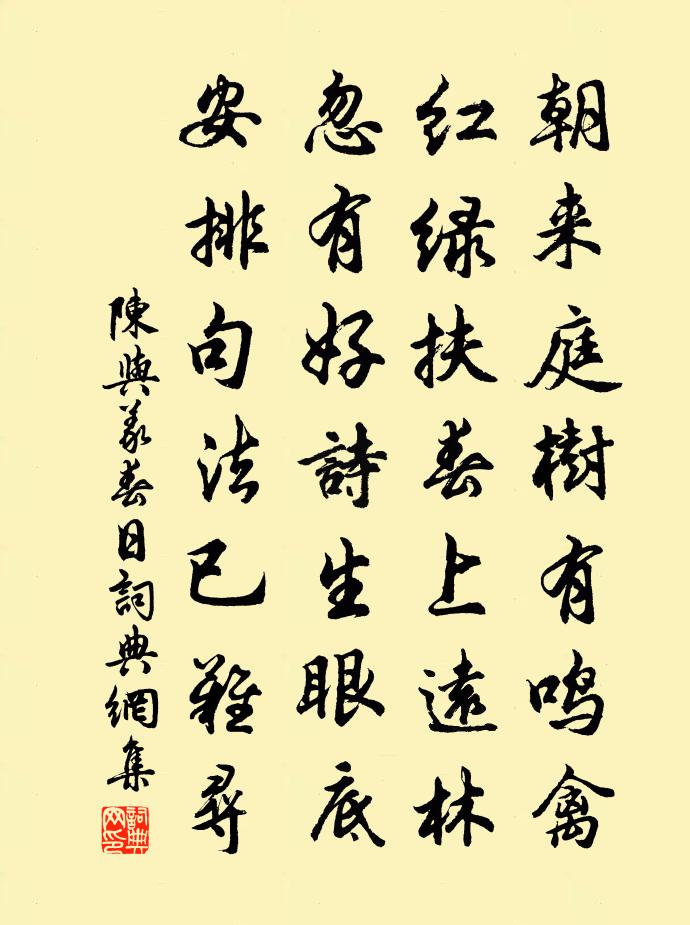 朝来庭樹有鸣禽
红绿扶春上遠林
忽有好詩生眼底
安排句法已難尋
陳與義春日詞典網集
詞典网印